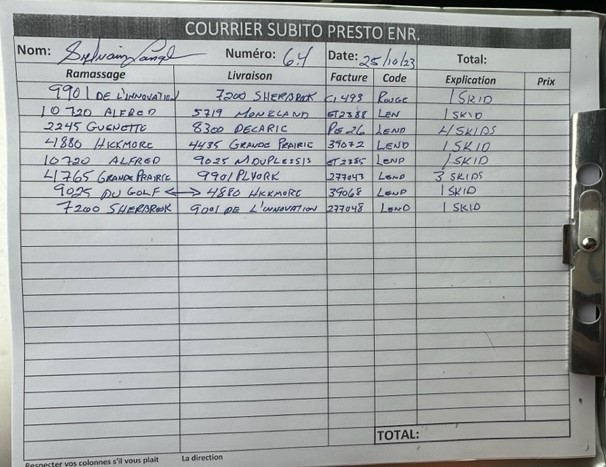 COURRIER SUBITO PRESTO ENR.
Nom: Sylvain Numéro: 64 Date: 25/10/23 Total:
Ramassage Livraison Facture Code Explication Prix
9901 DE L'INNOVATION 7200 SHERBROOK C1493 ROUGE 1 SKID
10720 ALFRED 5719 MONKLAND ET2388 LEN 1 SKID
2245 GUENETTE 8300 DECARIC PE26 LEND 4 SKIDS
4880 HICKMORE 4435 GRANDE PRAIRIE 39072 LEND 1 SKID
10720 ALFRED 9025 MDUPLESSIS ET2385 LEND 1 SKID
41765 GRANDE PRAIRIE 9901 PLYORK 277043 LEND 3 SKIDS
9025 DU GOLF ↔ 4880 HICKMORE 39068 LEND 1 SKID
7200 SHERBROOK 9001 DE L'INNOVATION 277048 LEND 1 SKID
TOTAL:
Respecter vos colonnes s'il vous plait La direction